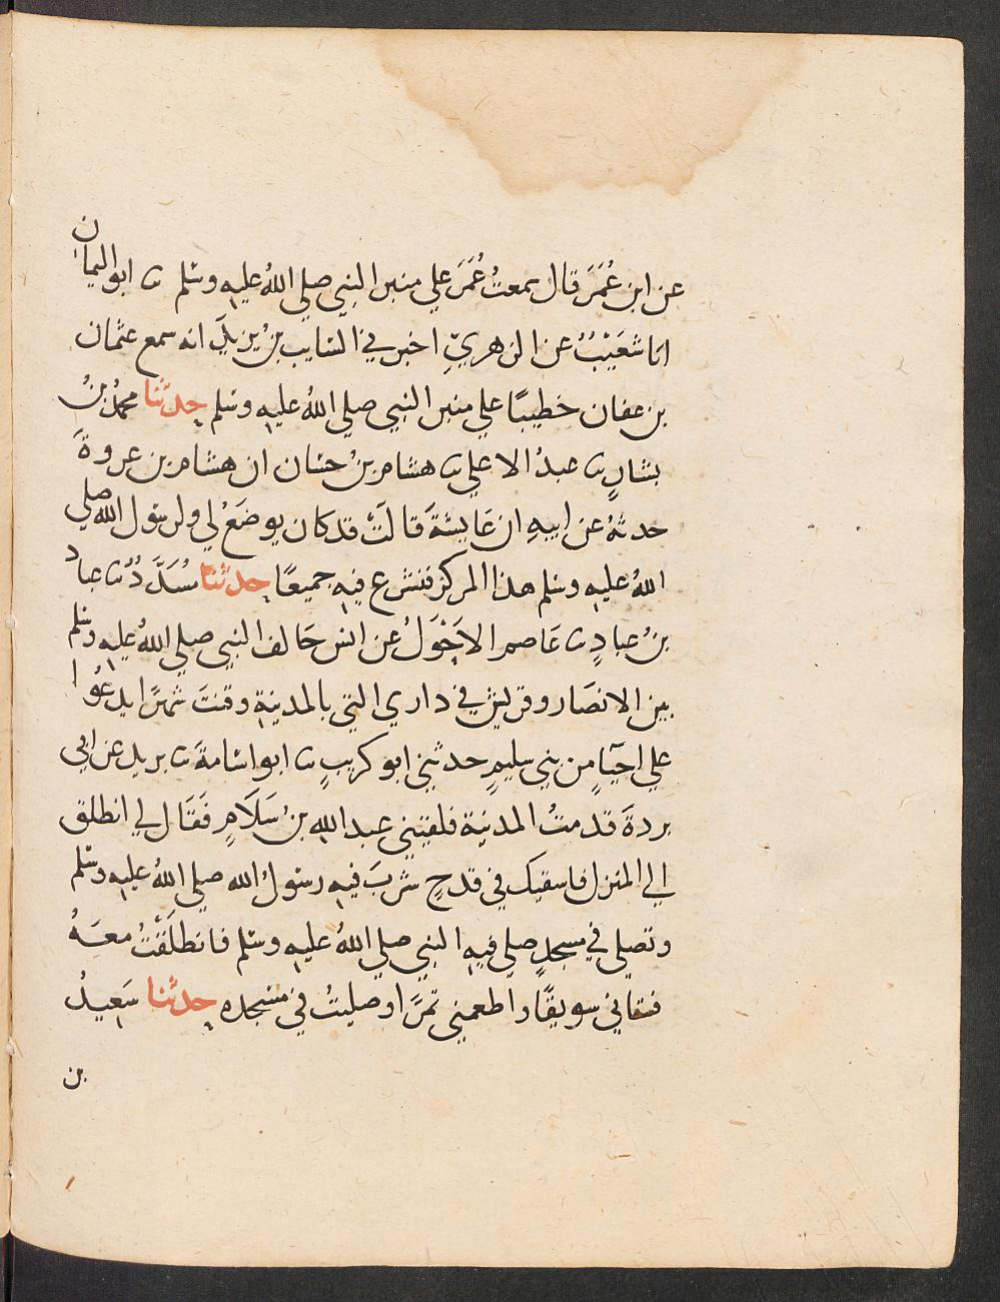 عن ابن عُمَرَ قال سمعتُ عُمَرَ علي منبر النبي صلي اللهُ عليه وسلم ثنا ابو اليمان
انا شعَيْبٌ عن الزهريِّ اخبرني السايب بنُ يزيدَ انه سمع عثمان
بن عفان خطيبًا علي منبر النبي صلي اللهُ عليه وسلم حدثنا محمدُ بنُ
بشارٍ ثنا عبدُ الاعلي ثنا هشام بنُ حسّان ان هشام بن عروةَ
حدثهُ عن ابيهِ ان عَايشةَ قالَتْ قد كان يوضَعُ لي ولرسول الله صلي
اللهُ عليه وسلم هذا المركز فنشرع فيه جميعًا حدثنا مُسَدَّدٌ ثنا عباد
بنُ عبادٍ ثنا عَاصم الاحَوَلُ عن انس حَالف النبي صلي اللهُ عليه وسلم
بين الانصَار وقريش في داري التي بالمدينةِ وقنتَ شهرًا يدعُوا
علي احيَآءٍ من بني سليمٍ حدثني ابو كريبٍ ثنا ابو اسَامةَ ثنا بريد عن ابي
بردةَ قدمتُ المدينة فلقيني عبد الله بنُ سَلَامٍ فقَال لي انطلق
الي المنزل فاسقيك في قدحٍ شربَ فيه رسُولُ الله صلي اللهُ عليه وسلم
وتصلي في مسجدٍ صلي فيهِ النبي صلي اللهُ عليه وسلم فانطلَقْتُ معَهُ
فسقاني سويقًا واطعمني تمرًا وصليتُ في مسْجده حدثنا سَعِيدُ
بن